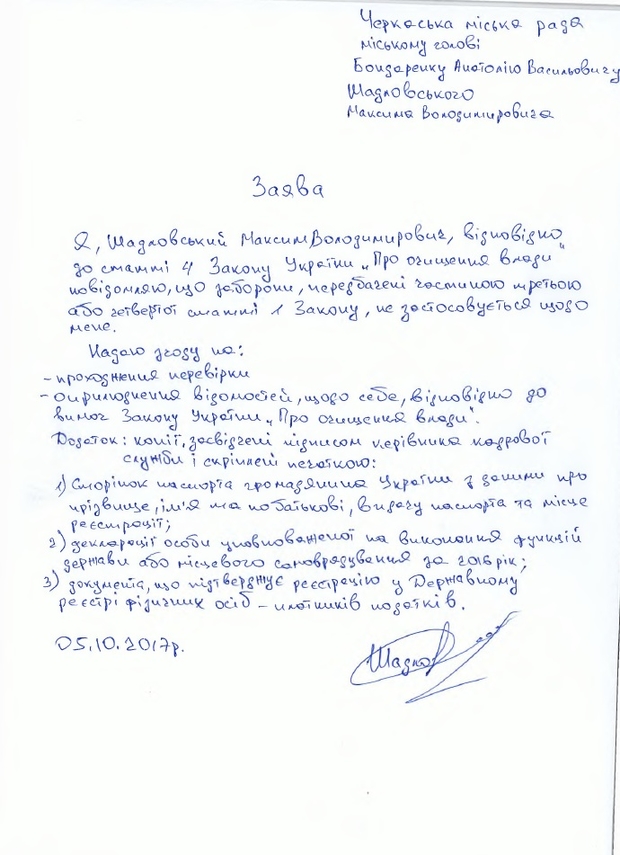 Черкаська міська рада
міському голові
Бондаренку Анатолію Васильовичу
Шадловського
Максима Володимировича
Заява
Я, Шадловський Максим Володимирович, відповідно
до статті 4 Закону України „Про очищення влади"
повідомляю, що заборони, передбачені частиною третьою
або четвертої статті 1 Закону, не застосовується щодо
мене.
Надаю згоду на:
- проходження перевірки
- оприлюднення відомостей, щодо себе, відповідно до
вимог Закону України „Про очищення влади".
Додаток: копії, засвідчені підписом керівника кадрової
служби і скріплені печаткою:
1) Сторінок паспорта громадянина України з даними про
прізвище, ім'я та по батькові, видачу паспорта та місце
реєстрації;
2) декларації особи уповноваженої на виконання функцій
держави або місцевого самоврядування за 2016 рік;
3) документа, що підтверджує реєстрацію у Державному
реєстрі фізичних осіб - платників податків.
05.10.2017р.